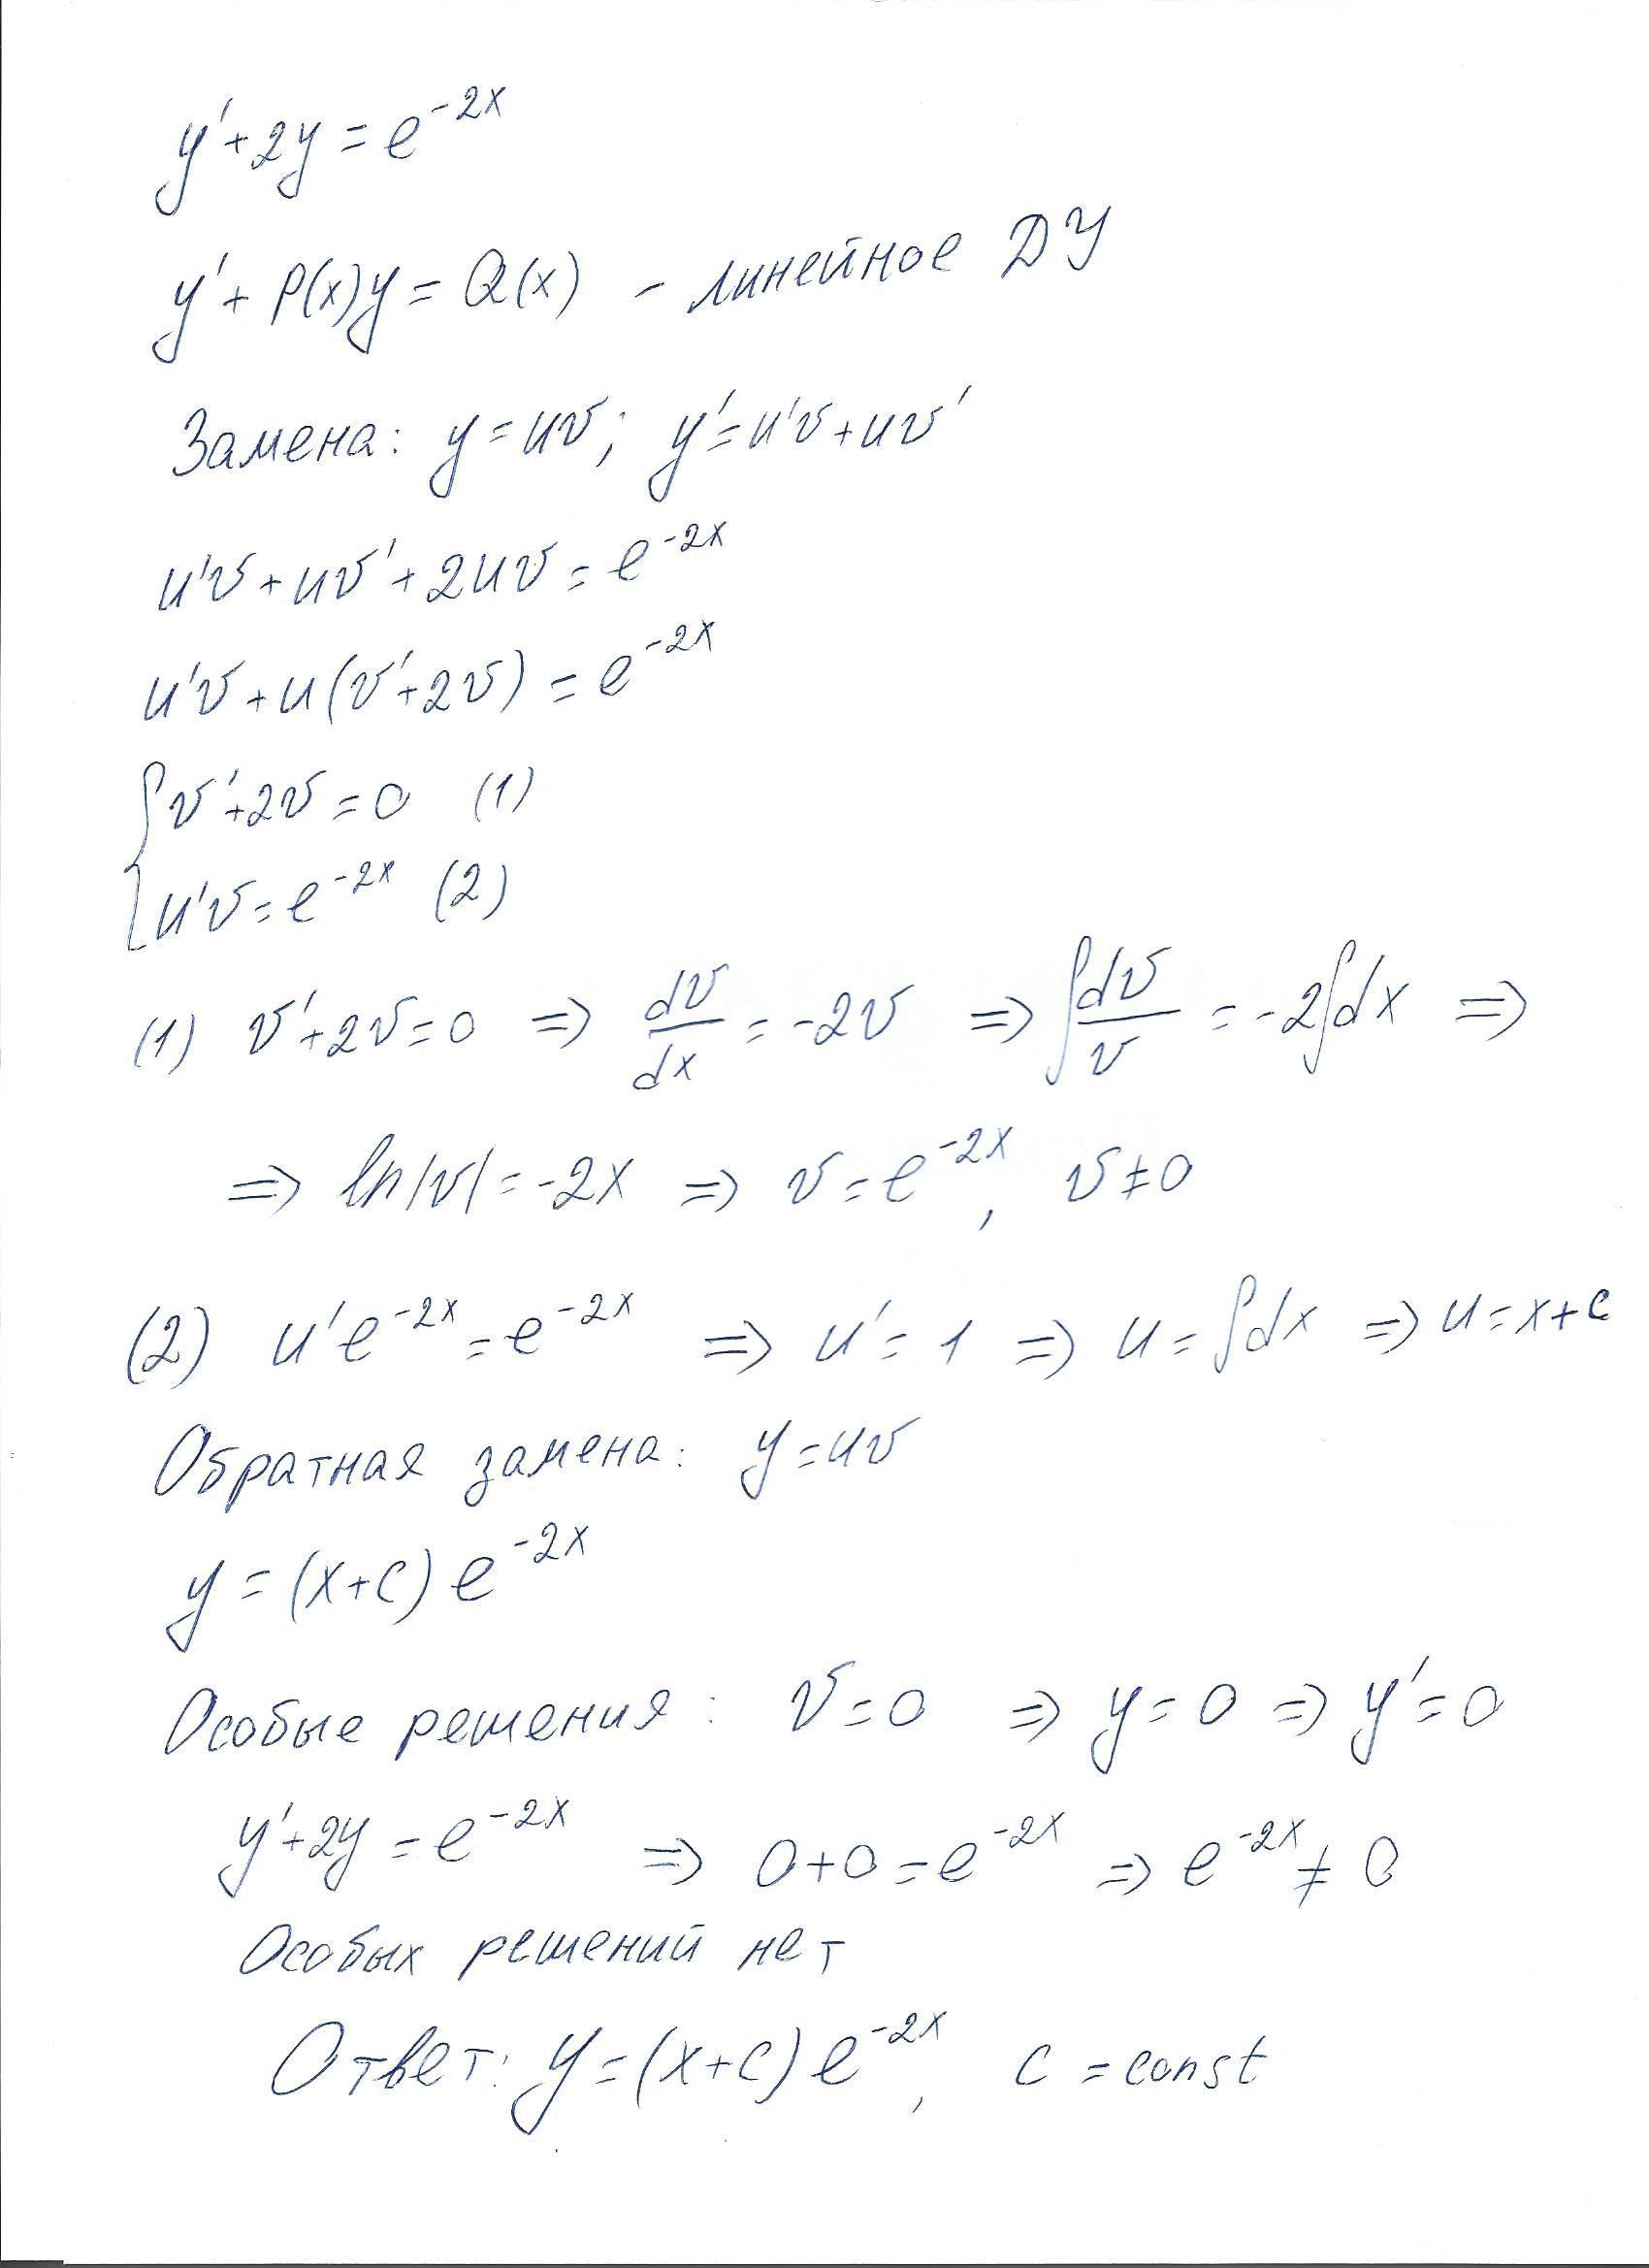 y'+2y = e^{-2x}
y' + P(x)y = Q(x) - линейное ДУ
Замена: y = uv; y' = u'v + uv'
u'v + uv' + 2uv = e^{-2x}
u'v + u(v'+2v) = e^{-2x}
{ v'+2v = 0 (1)
u'v = e^{-2x} (2)
(1) v'+2v = 0 => dv/dx = -2v => ∫dv/v = -2∫dx =>
=> ln|v| = -2x => v = e^{-2x}, v ≠ 0
(2) u'e^{-2x} = e^{-2x} => u' = 1 => u = ∫dx => u = x+c
Обратная замена: y = uv
y = (x+c) e^{-2x}
Особые решения: v = 0 => y = 0 => y' = 0
y'+2y = e^{-2x} => 0+0 = e^{-2x} => e^{-2x} ≠ 0
Особых решений нет
Ответ: y = (x+c) e^{-2x}, c = const